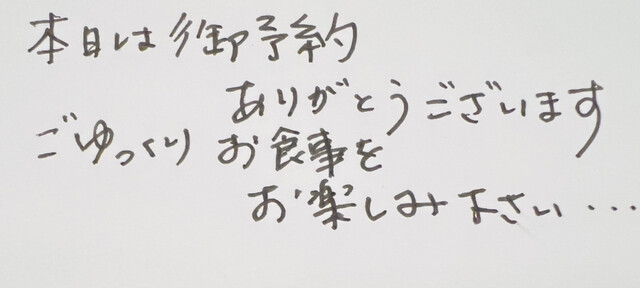 本日は御予約
ありがとうございます
ごゆっくりお食事を
お楽しみ下さい…